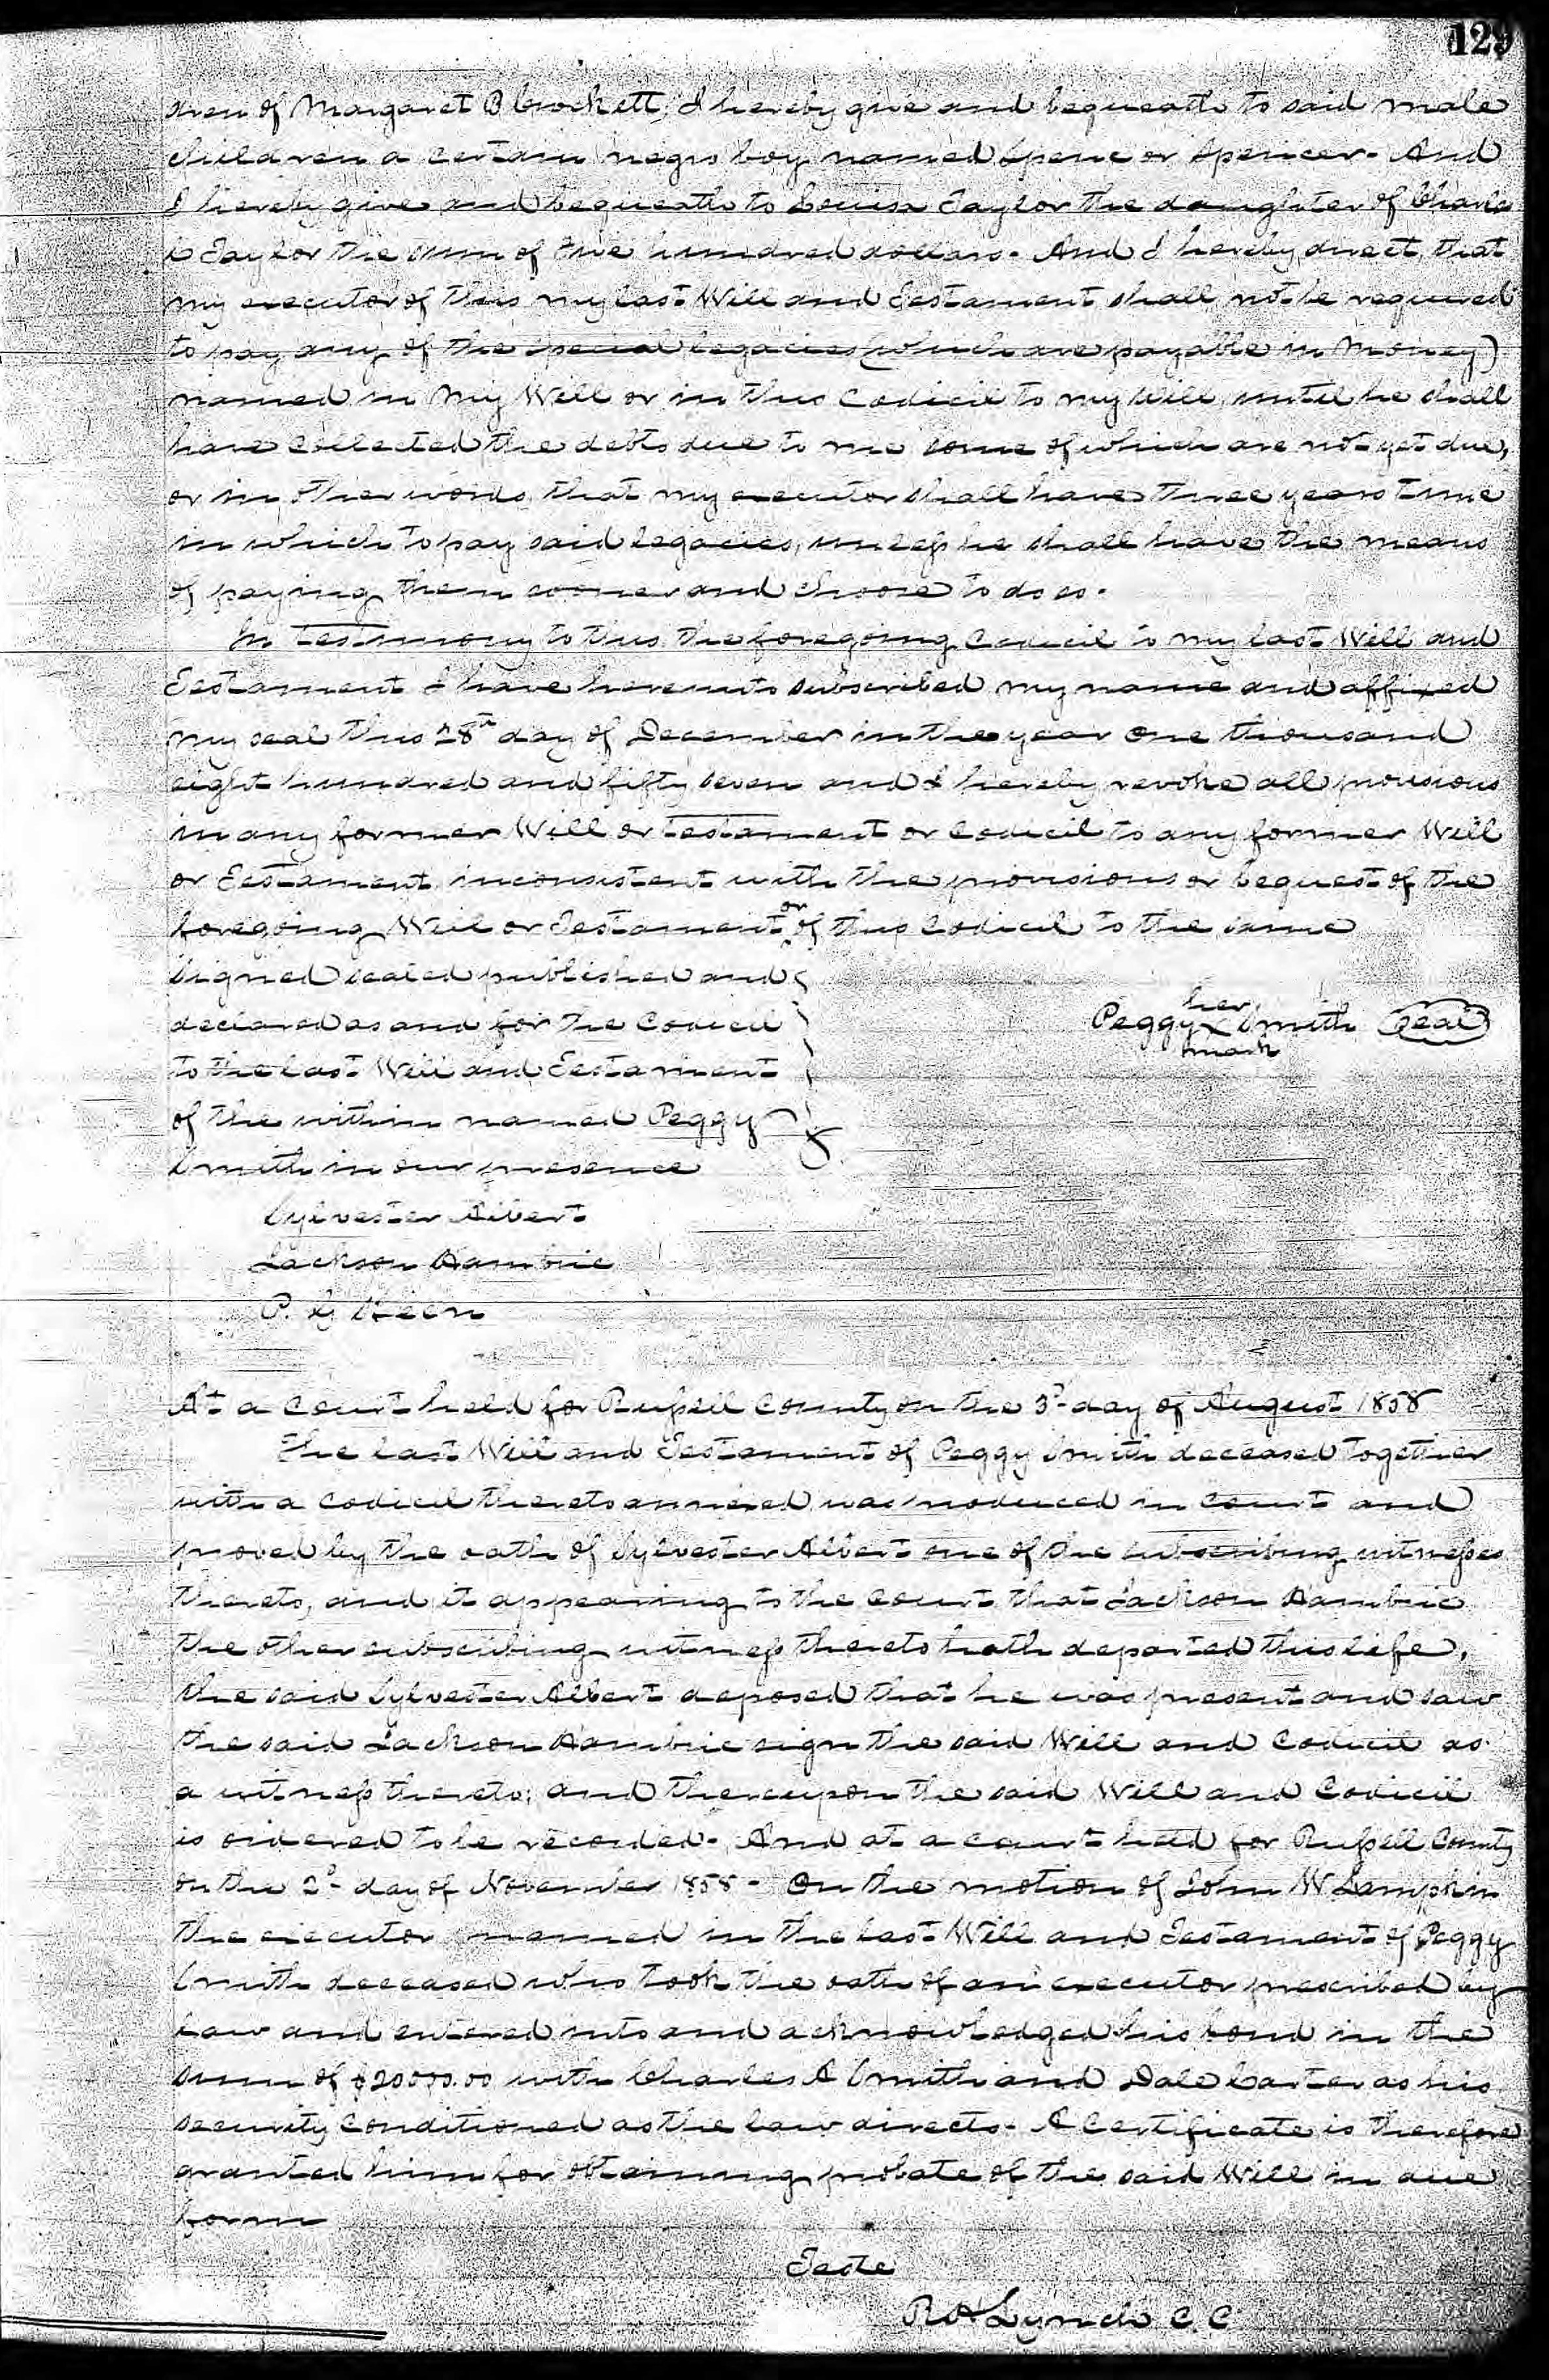 129
dren of Margaret B Crockett, I hereby give and bequeath to said male
children a certain negro boy named Spence or Spencer. And
I hereby give and bequeath to Louisa Taylor the daughter of Charles
Taylor the sum of five hundred dollars. And I hereby direct that
my executor of this my last Will and Testament shall not be required
to pay any of the special legacies (which are payable in money)
named in my Will or in this Codicil to my Will, until he shall
have collected the debts due to me some of which are not yet due,
or in other words, that my executor shall have three years time
in which to pay said legacies, unless he shall have the means
of paying them sooner and choose to do so.
In testimony to this the foregoing Codicil to my last Will and
Testament I have hereunto subscribed my name and affixed
my seal this 28th day of December in the year one thousand
eight hundred and fifty seven and I hereby revoke all provisions
in any former Will or testament or Codicil to any former Will
or Testament inconsistent with the provisions or bequest of the
foregoing Will or Testament or of this Codicil to the same
Signed sealed published and
declared as and for the Codicil
to the last Will and Testament
of the within named Peggy
Smith in our presence
her
Peggy X Smith Seal
mark
Sylvester Albert
Jackson Hambric
P. G Keen
At a Court held for Russell County on the 3d day of August 1858
The last Will and Testament of Peggy Smith deceased together
with a codicil thereto annexed was produced in Court and
proved by the oath of Sylvester Albert one of the subscribing witnesses
thereto, and it appearing to the Court that Jackson Hambric
the other subscribing witness thereto hath departed this life,
the said Sylvester Albert deposed that he was present and saw
the said Jackson Hambric sign the said Will and Codicil as
a witness thereto; and thereupon the said Will and Codicil
is ordered to be recorded. And at a court held for Russell County
on the 2d day of November 1858 - On the motion of John W Lampkin
the executor named in the last Will and Testament of Peggy
Smith deceased who took the oath of an executor prescribed by
law and entered into and acknowledged his bond in the
sum of $20000.00 with Charles A Smith and Dale Carter as his
security conditioned as the law directs. A Certificate is therefore
granted him for obtaining probate of the said Will in due
form
Teste
R A Lynch C. C